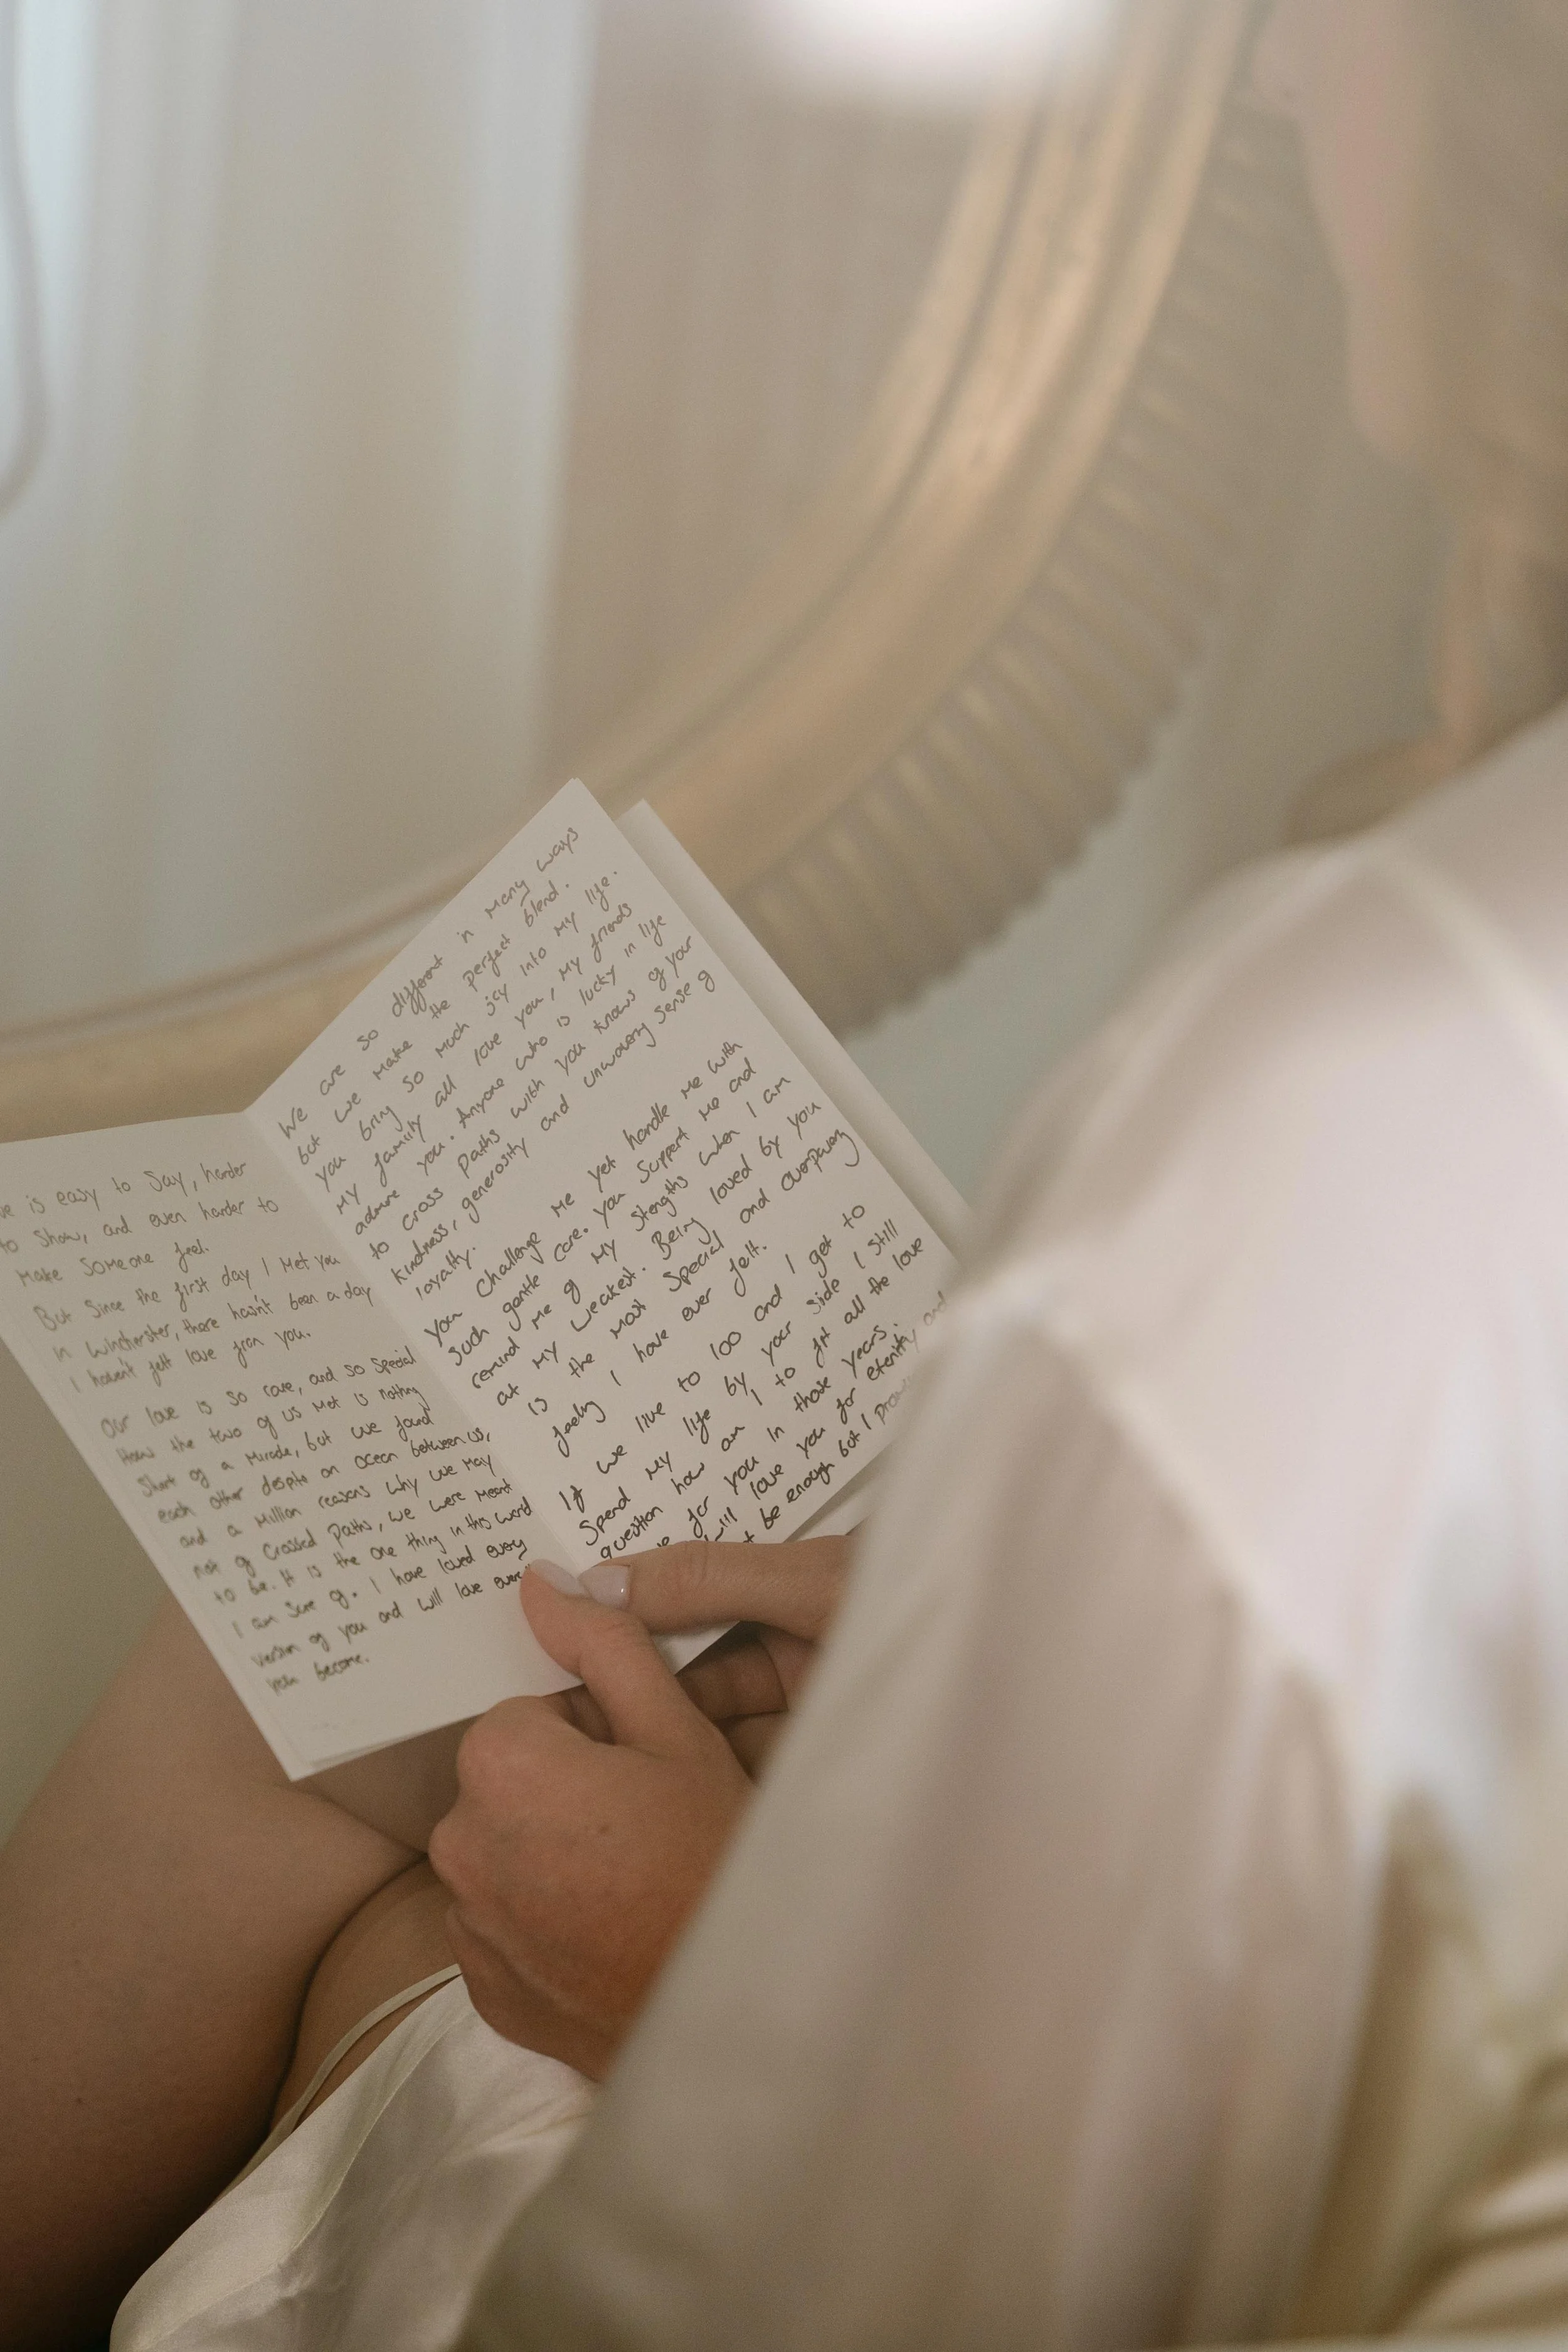 is easy to Say, harder
to Show, and even harder to
Make Someone feel.
But Since the first day I Met you
in Winchester, there hasn't been a day
I haven't felt love from you.
Our love is so rare, and so Special
How the two of us Met is nothing
Short of a Miracle, but we found
each other despite an ocean between us,
and a Million reasons why we May
not of Crossed Paths, we were Meant
to be. It is the one thing in this world
I am Sure of. I have loved every
version of you and will love
you become.
We are so different in Many ways
but we make the perfect blend.
you bring so Much joy into My life.
My family all love you, My friends
admire you. Anyone who is lucky in life
to cross Paths with you knows of your
kindness, generosity and unwavering sense of
loyalty.
you Challenge Me yet handle Me with
Such gentle Care. you Support Me and
remind Me of My Strengths when I am
at My weakest. Being loved by you
is the Most Special and overpowering
feeling I have ever felt.
If we live to 100 and I get to
Spend My life by your Side I Still
question how am I to fit all the love
for you in those years.
will love you for eternity and
be enough but I